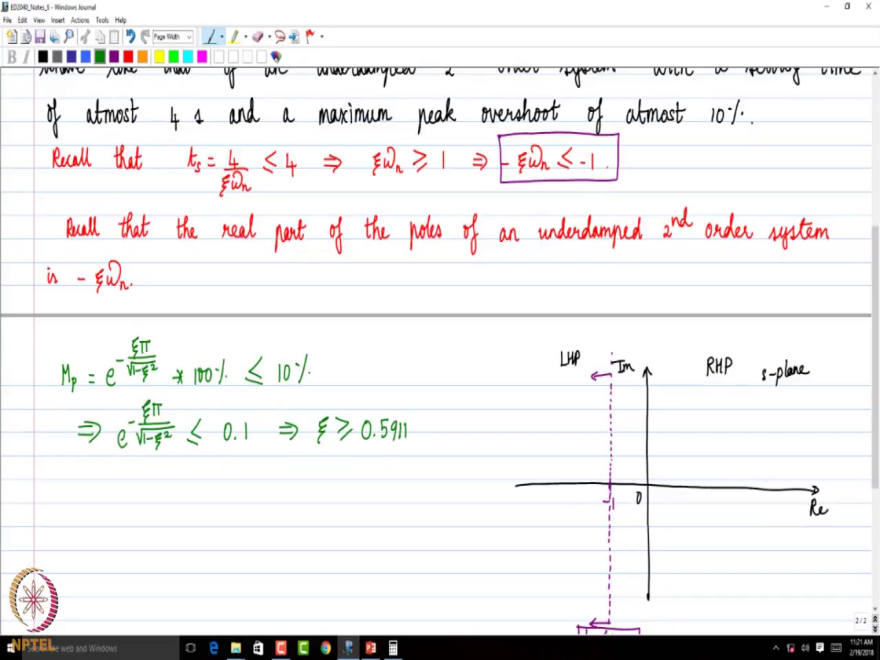 ED2040_Notes_6 - Windows Journal
File Edit View Insert Actions Tools Help
Page Width
B I
of an underdamped 2 order system with a settling time
of atmost 4 s and a maximum peak overshoot of atmost 10%.
Recall that ts = 4/ξωn ≤ 4 ⇒ ξωn ≥ 1 ⇒ -ξωn ≤ -1.
Recall that the real part of the poles of an underdamped 2nd order system
is - ξωn.
Mp = e^(-ξπ/√(1-ξ²)) * 100% ≤ 10%
⇒ e^(-ξπ/√(1-ξ²)) ≤ 0.1 ⇒ ξ ≥ 0.5911
LHP Im RHP s-plane
-1 0 Re
2/2
NPTEL
11:21 AM
2/19/2018